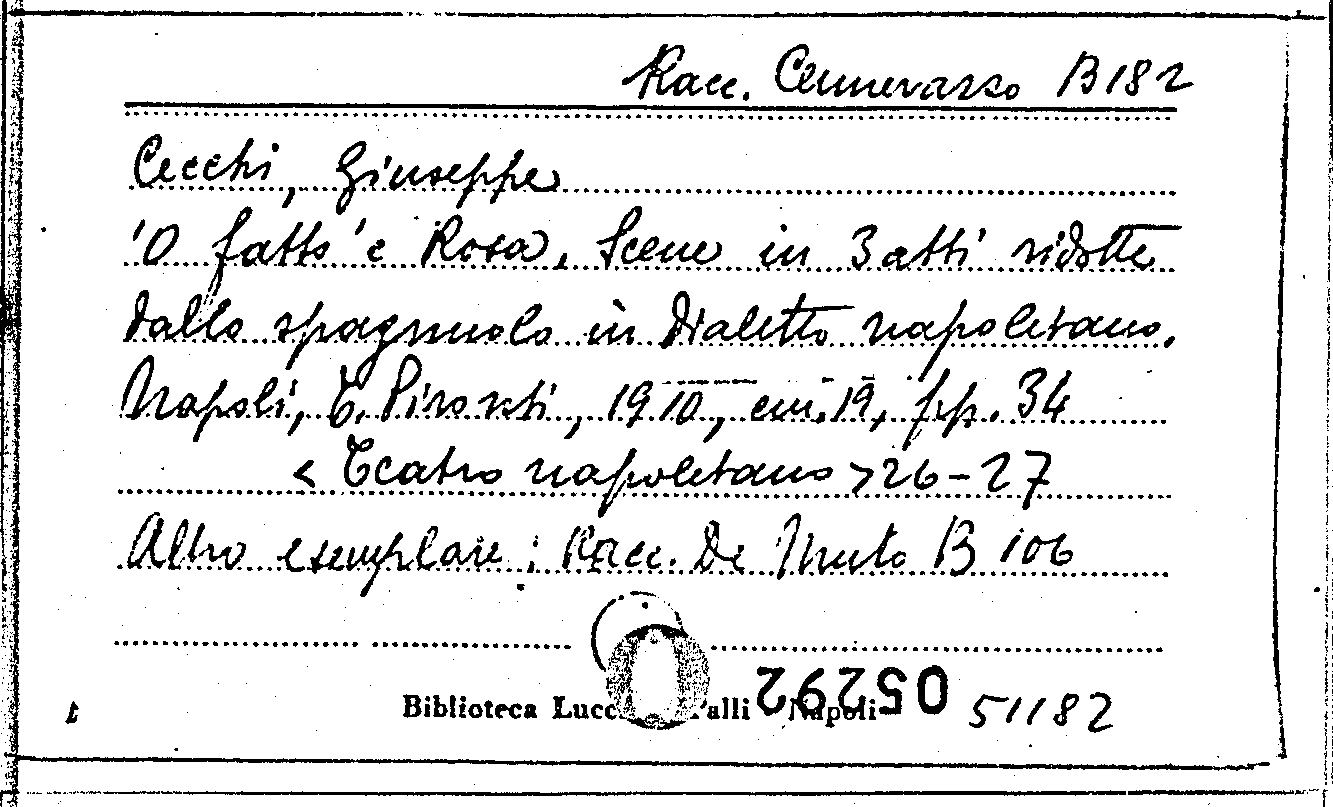 Racc. Cennerazzo B 182
Cecchi, Giuseppe
'O fatto 'e Rosa. Scene in 3 atti ridotte
dallo spagnuolo in dialetto napoletano.
Napoli, T. Pironti, 1910, cm. 19, pp. 34
< Teatro napoletano > 26-27
Altro esemplare: Racc. De Muto B 106
Biblioteca Lucc alli Napoli 05292 51182